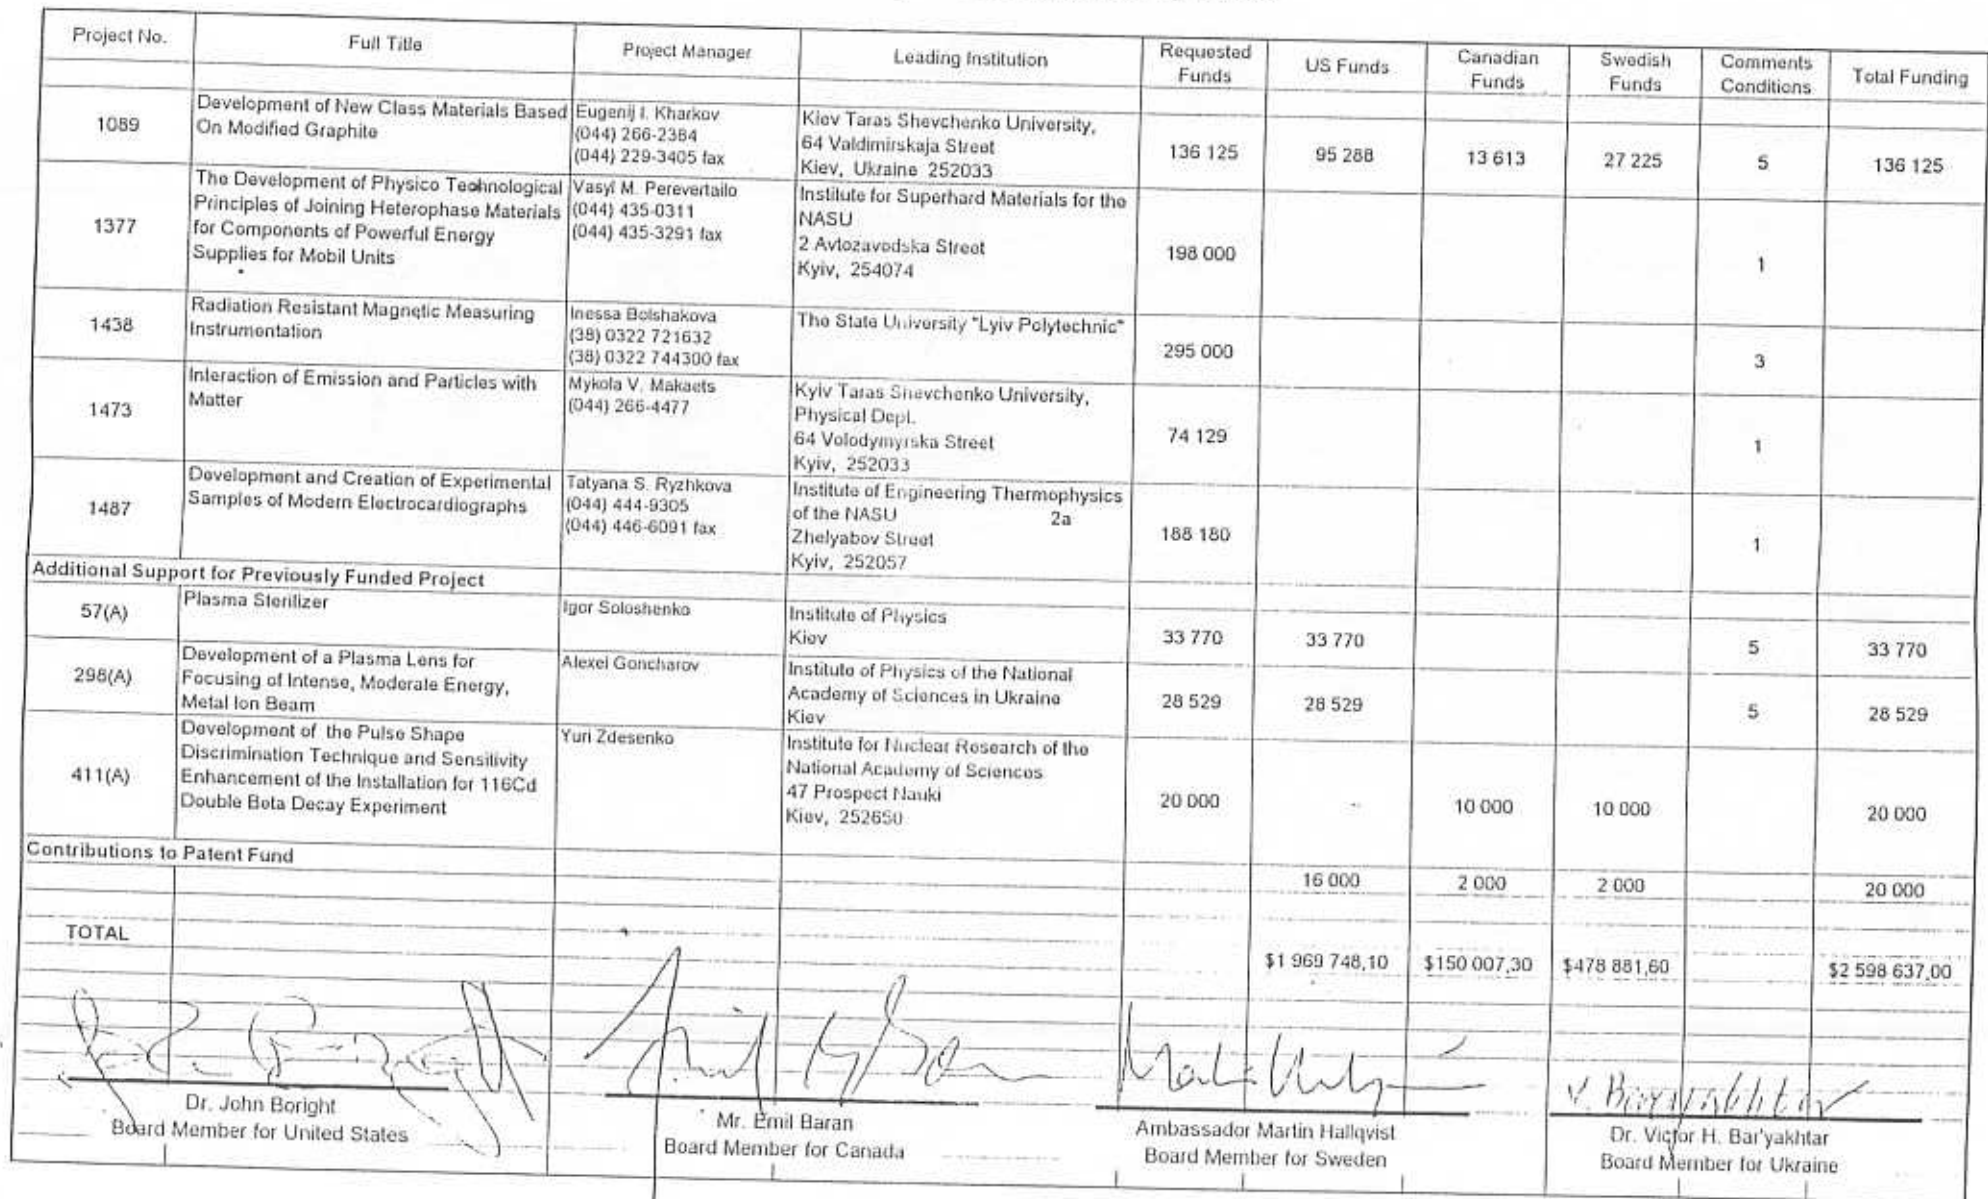 Project No. Full Title Project Manager Leading Institution Requested Funds US Funds Canadian Funds Swedish Funds Comments Conditions Total Funding
1089
Development of New Class Materials Based
On Modified Graphite
Eugenij I. Kharkov
(044) 266-2384
(044) 229-3405 fax
Kiev Taras Shevchenko University,
64 Valdimirskaja Street
Kiev, Ukraine 252033
136 125 95 288 13 613 27 225 5 136 125
1377
The Development of Physico Technological
Principles of Joining Heterophase Materials
for Components of Powerful Energy
Supplies for Mobil Units
Vasyl M. Perevertailo
(044) 435-0311
(044) 435-3291 fax
Institute for Superhard Materials for the
NASU
2 Avtozavodska Street
Kyiv, 254074
198 000 1
1438
Radiation Resistant Magnetic Measuring
Instrumentation
Inessa Bolshakova
(38) 0322 721632
(38) 0322 744300 fax
The State University "Lyiv Polytechnic"
295 000 3
1473
Interaction of Emission and Particles with
Matter
Mykola V. Makaets
(044) 266-4477
Kyiv Taras Shevchenko University,
Physical Dept.
64 Volodymyrska Street
Kyiv, 252033
74 129 1
1487
Development and Creation of Experimental
Samples of Modern Electrocardiographs
Tatyana S. Ryzhkova
(044) 444-9305
(044) 446-6091 fax
Institute of Engineering Thermophysics
of the NASU 2a
Zhelyabov Street
Kyiv, 252057
188 180 1
Additional Support for Previously Funded Project
57(A)
Plasma Sterilizer
Igor Soloshenko
Institute of Physics
Kiev
33 770 33 770 5 33 770
298(A)
Development of a Plasma Lens for
Focusing of Intense, Moderate Energy,
Metal Ion Beam
Alexei Goncharov
Institute of Physics of the National
Academy of Sciences in Ukraine
Kiev
28 529 28 529 5 28 529
411(A)
Development of the Pulse Shape
Discrimination Technique and Sensitivity
Enhancement of the Installation for 116Cd
Double Beta Decay Experiment
Yuri Zdesenko
Institute for Nuclear Research of the
National Academy of Sciences
47 Prospect Nauki
Kiev, 252650
20 000 - 10 000 10 000 20 000
Contributions to Patent Fund
16 000 2 000 2 000 20 000
TOTAL
$1 969 748,10 $150 007,30 $478 881,60 $2 598 637,00
V. Baryakhtar
Dr. John Boright
Board Member for United States
Mr. Emil Baran
Board Member for Canada
Ambassador Martin Hallqvist
Board Member for Sweden
Dr. Victor H. Bar'yakhtar
Board Member for Ukraine